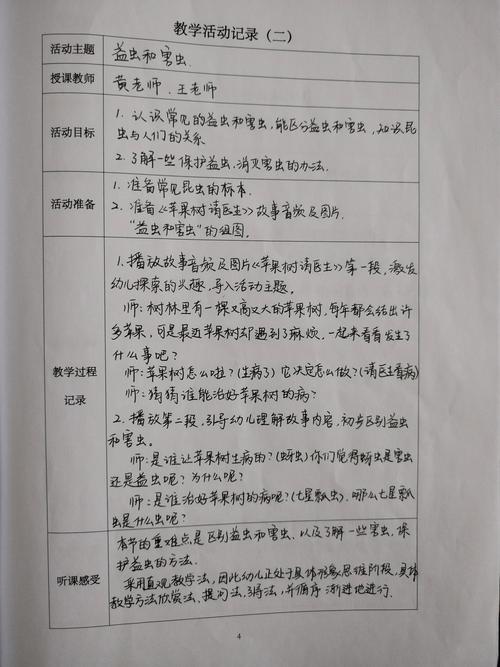 教学活动记录（二）
活动主题 益虫和害虫.
授课教师 黄老师、王老师
1. 认识常见的益虫和害虫,能区分益虫和害虫,知识昆
活动目标 虫与人们的关系
2. 了解一些保护益虫,消灭害虫的办法.
1. 准备常见昆虫的标本.
活动准备 2. 准备《苹果树请医生》故事音频及图片.
"益虫和害虫"的组图.
1. 播放故事音频及图片《苹果树请医生》第一段,激发
幼儿探索的兴趣,导入活动主题。
师:树林里有一棵又高又大的苹果树,每年都会结出许
多苹果,可是最近苹果树却遇到了麻烦,一起来看看发生了
什么事吧?
师:苹果树怎么啦?(生病了)它决定怎么做?(请医生看病)
教学过程 师:猜猜谁能治好苹果树的病?
记录
2. 播放第二段,引导幼儿理解故事内容,初步区别益虫
和害虫。
师:是谁让苹果树生病的?(蚜虫)你们觉得蚜虫是害虫
还是益虫呢?为什么呢?
师:是谁治好苹果树的病呢?(七星瓢虫).哪么七星瓢
虫是什么虫呢?
本节的重难点是区别益虫和害虫.以及了解一些害虫,保
护益虫的方法.
听课感受 采用直观教学法,因此幼儿正处于具体形象思维阶段,具体
教学方法欣赏法、提问法、引导法,并循序渐进地进行.
4